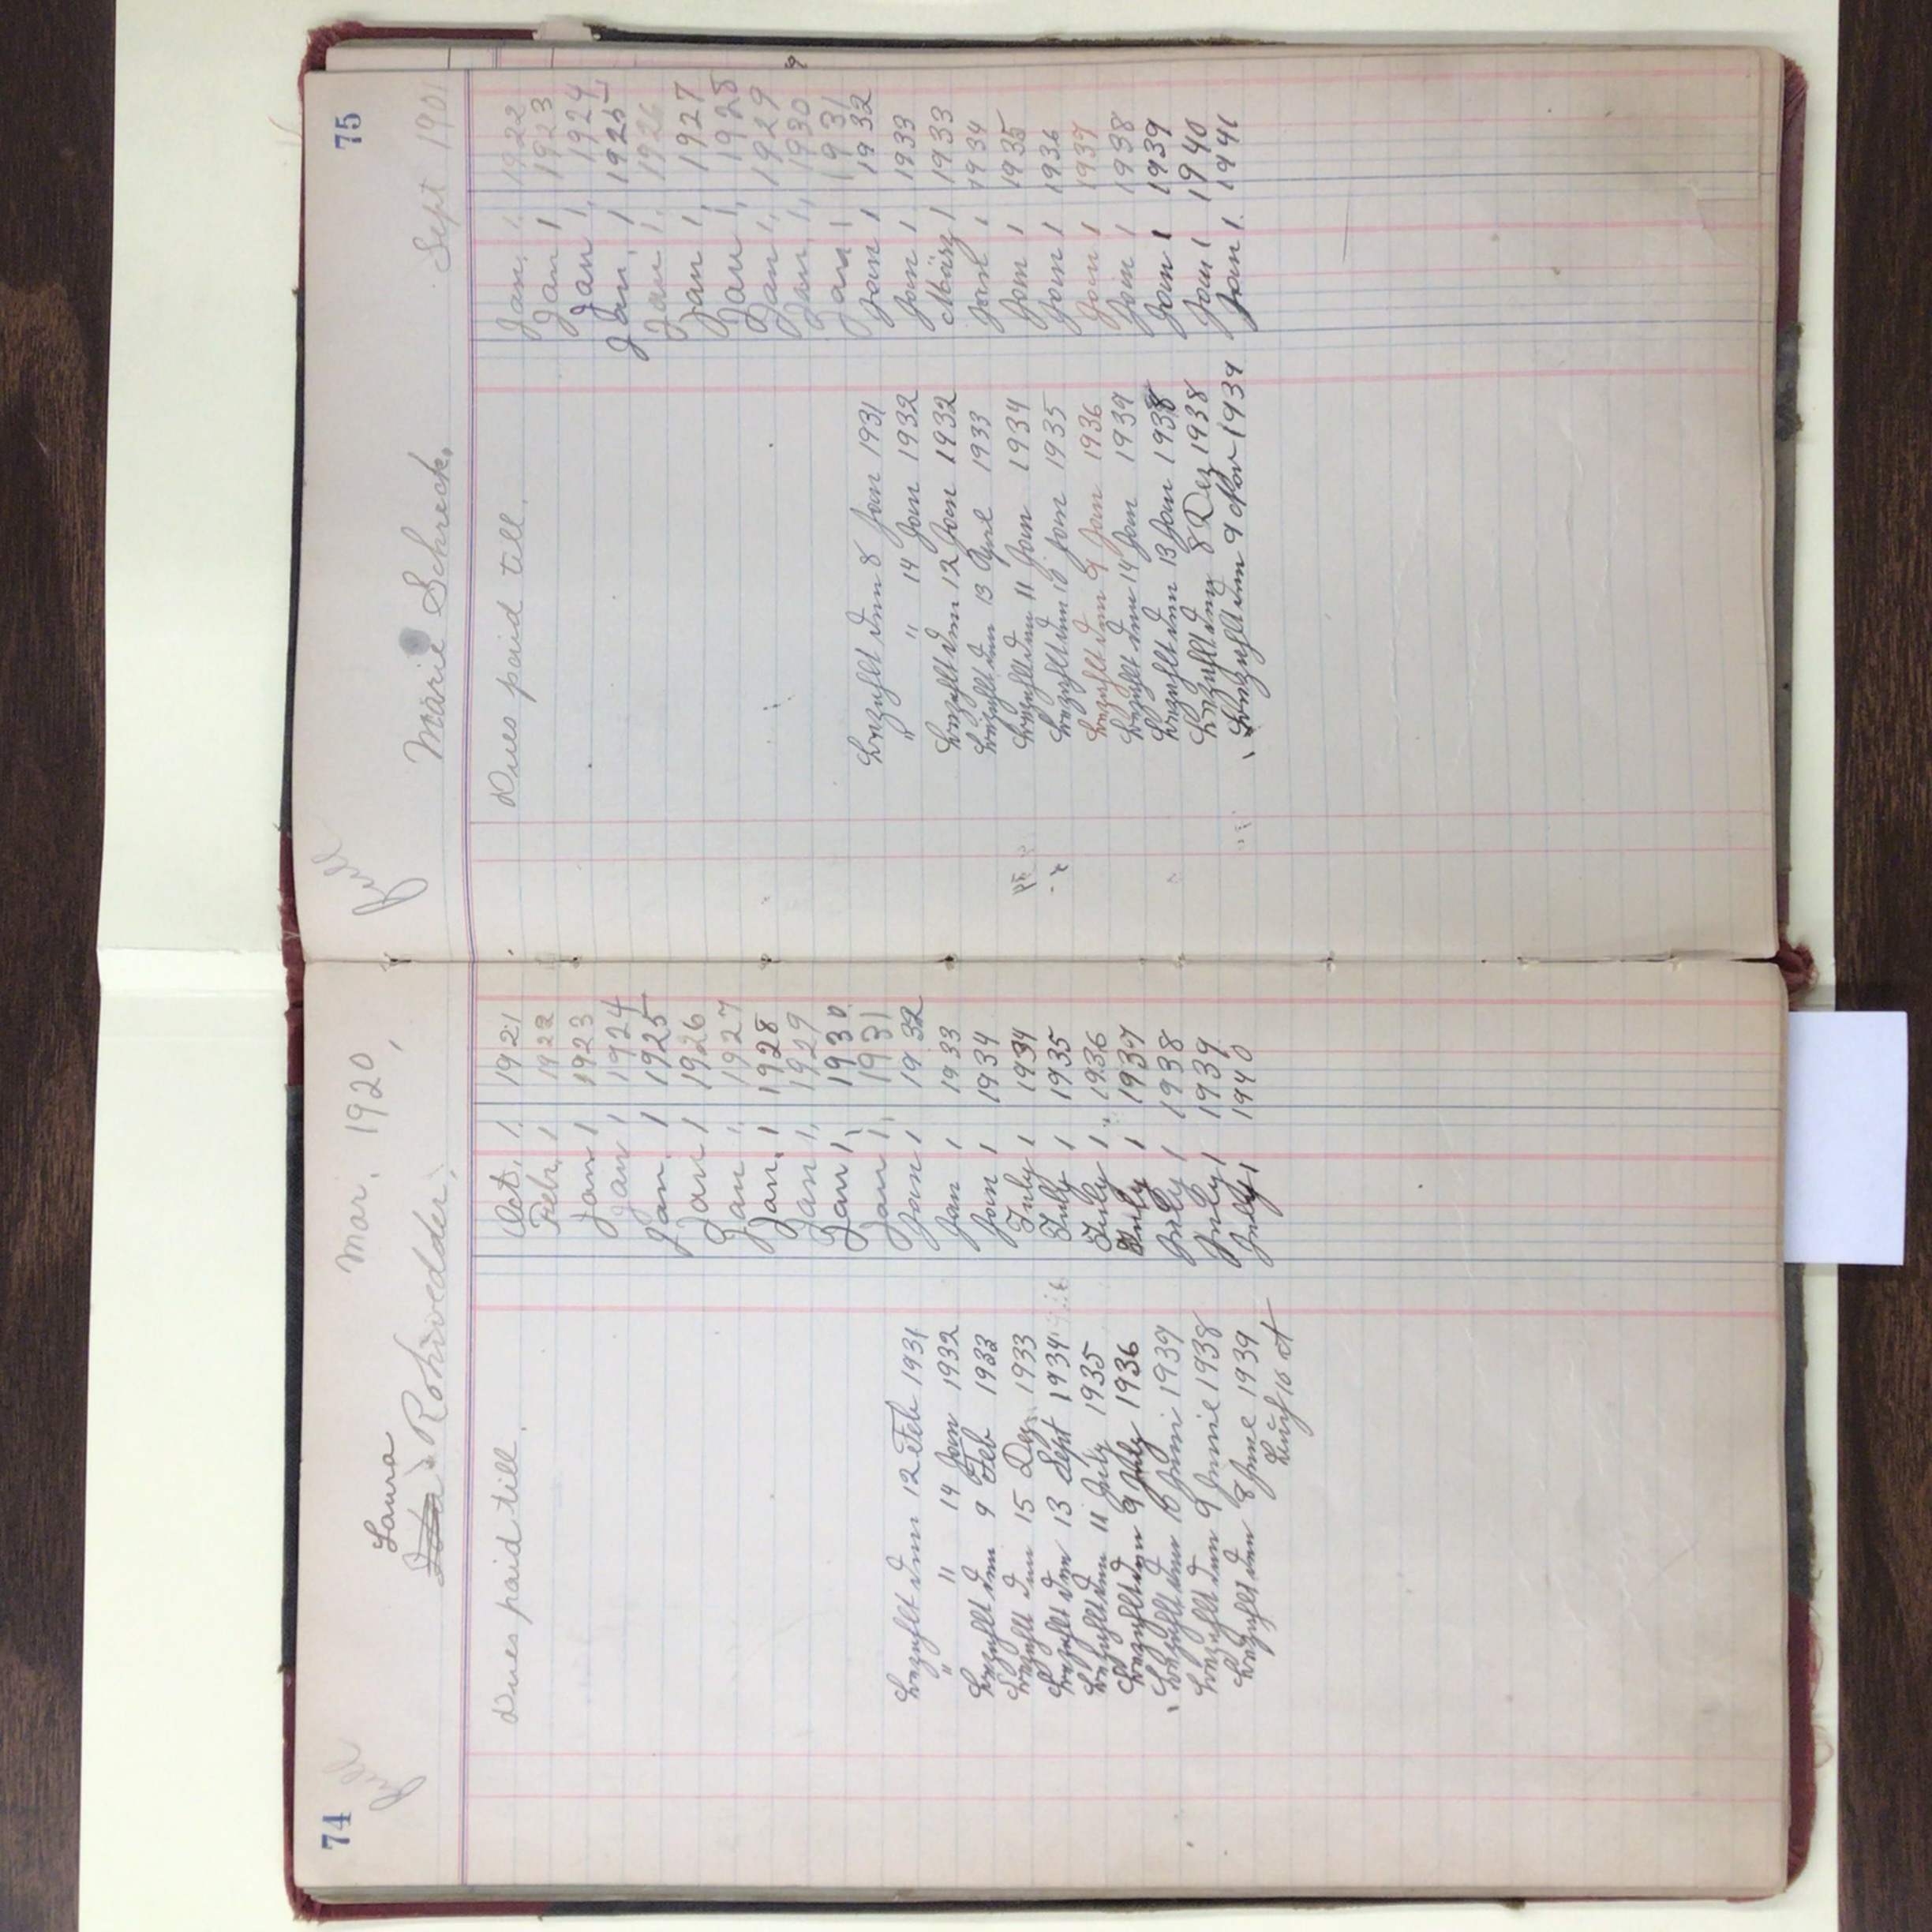 74
full
Mar. 1920,
Laura
Ida Rohwedder,
Dues paid till Oct. 1. 1921
Febr. 1 1922
Jan 1 1923
Jan 1 1924
Jan. 1 1925
Jan 1 1926
Jan 1, 1927
Jan. 1 1928
Jan 1, 1929
Jan 1, 1930.
Jan 1, 1931
Bezahlt den 12 Feb 1931 Jan 1 1932
" " 14 Jan 1932 Jan 1 1933
Bezahlt den 9 Feb 1933 Jan 1 1934
Bezahlt den 15 Dez 1933 July 1 1934
Bezahlt den 13 Sept 1934 July 1 1935
Bezahlt den 11 July 1935 July 1 1936
Bezahlt den 9 July 1936 July 1 1937
Bezahlt den 10 Juni 1937 July 1 1938
Bezahlt den 9 Junie 1938 July 1 1939
Bezahlt den 8 June 1939 July 1 1940
75
full
Marie Schreck. Sept 1901
Dues paid till. Jan. 1. 1922
Jan 1 1923
Jan 1, 1924
Jan. 1 1925
Jan 1. 1926
Jan 1, 1927
Jan 1, 1928
Jan 1, 1929
Jan. 1, 1930
Jan 1 1931
Bezahlt den 8 Jan 1931 Jan 1 1932
" " 14 Jan 1932 Jan 1 1933
Bezahlt den 12 Jan 1932 März 1 1933
Bezahlt den 13 April 1933 Jan 1 1934
Bezahlt den 11 Jan 1934 Jan 1 1935
Bezahlt den 10 Jan 1935 Jan 1 1936
Bezahlt den 9 Jan 1936 Jan 1 1937
Bezahlt den 14 Jan 1937 Jan 1 1938
Bezahlt den 13 Jan 1938 Jan 1 1939
Bezahlt den 8 Dez 1938 Jan 1 1940
Bezahlt den 9 Nov 1939 Jan 1. 1941